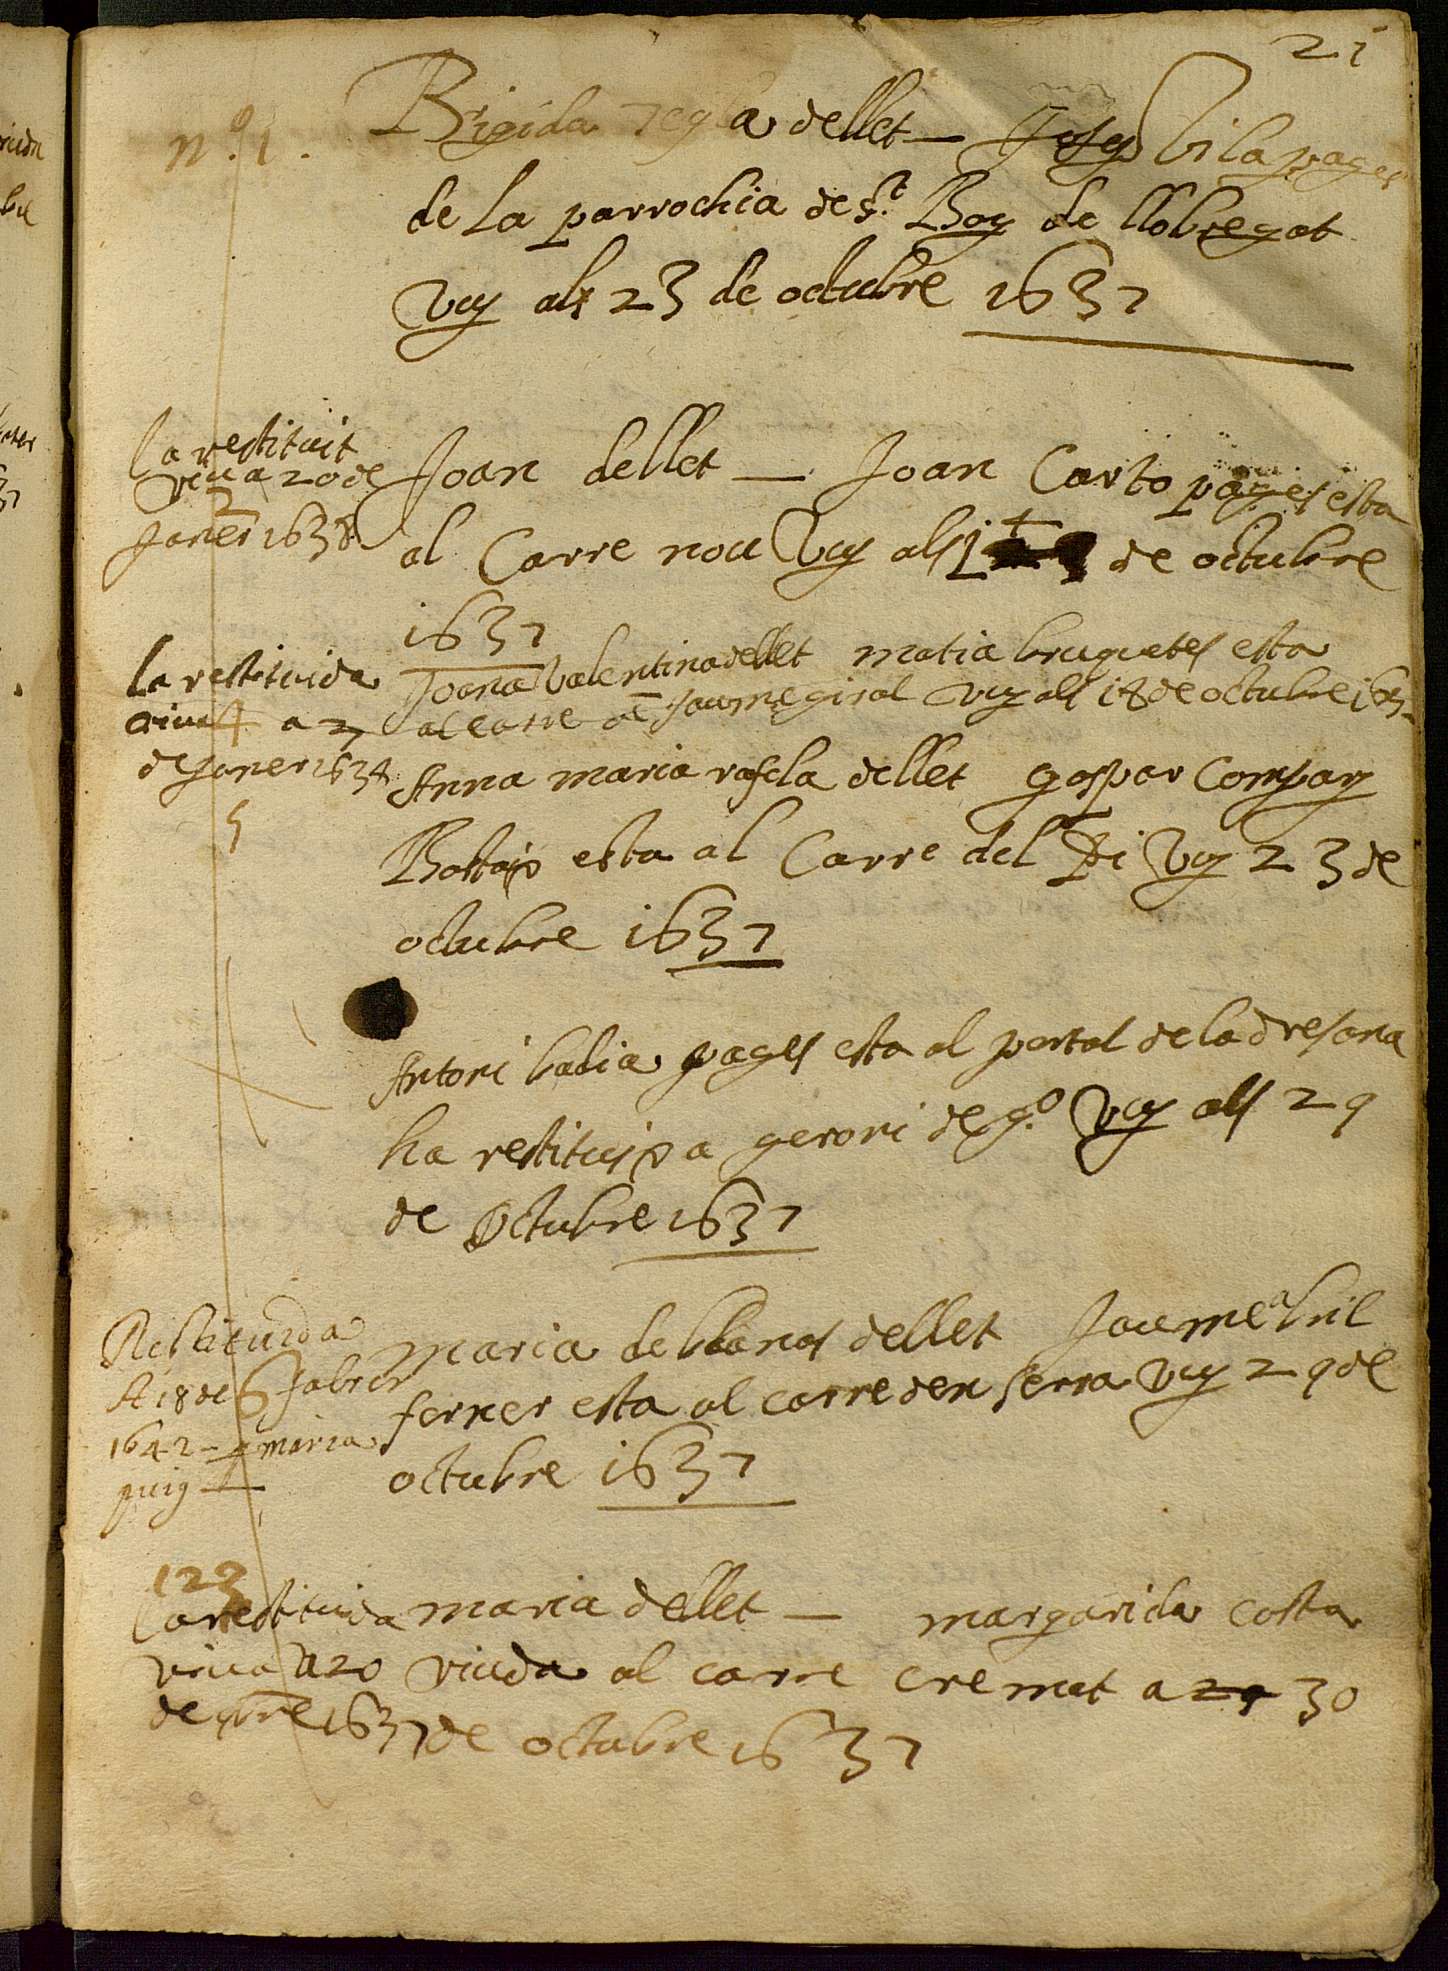 21
nº 1.
Brigida a dellet — Josep Vila pages
de la parrochia de st. Boy de llobregat
vuy als 23 de octubre 1637
La restituit
viva a 20 de
Janer 1638
Joan dellet — Joan Carto pages esta
al Carre nou Vuy als de octubre
1637
La restituida
viva a
de Janer 1638
Joana Valentina dellet matia bruguetes esta
al carre de Jaume giral vuy als 18 de octubre 1637
Anna maria rafela dellet gaspar Compay
Bastaip esta al Carre del Pi Vuy 23 de
octubre 1637
Antori badia pages esta al portal de la dresana
ha restituip a geroni de gº. Vuy als 29
de Octubre 1637
Restituida
A 18 de Fabrer
1642 – maria
puig —
maria de blanos dellet Jaume abril
ferrer esta al carre den serra vuy 29 de
octubre 1637
123
la restituida
viva a 20
de 1637
maria dellet — margarida costa
viuda al carre cremat a 29 30
de octubre 1637